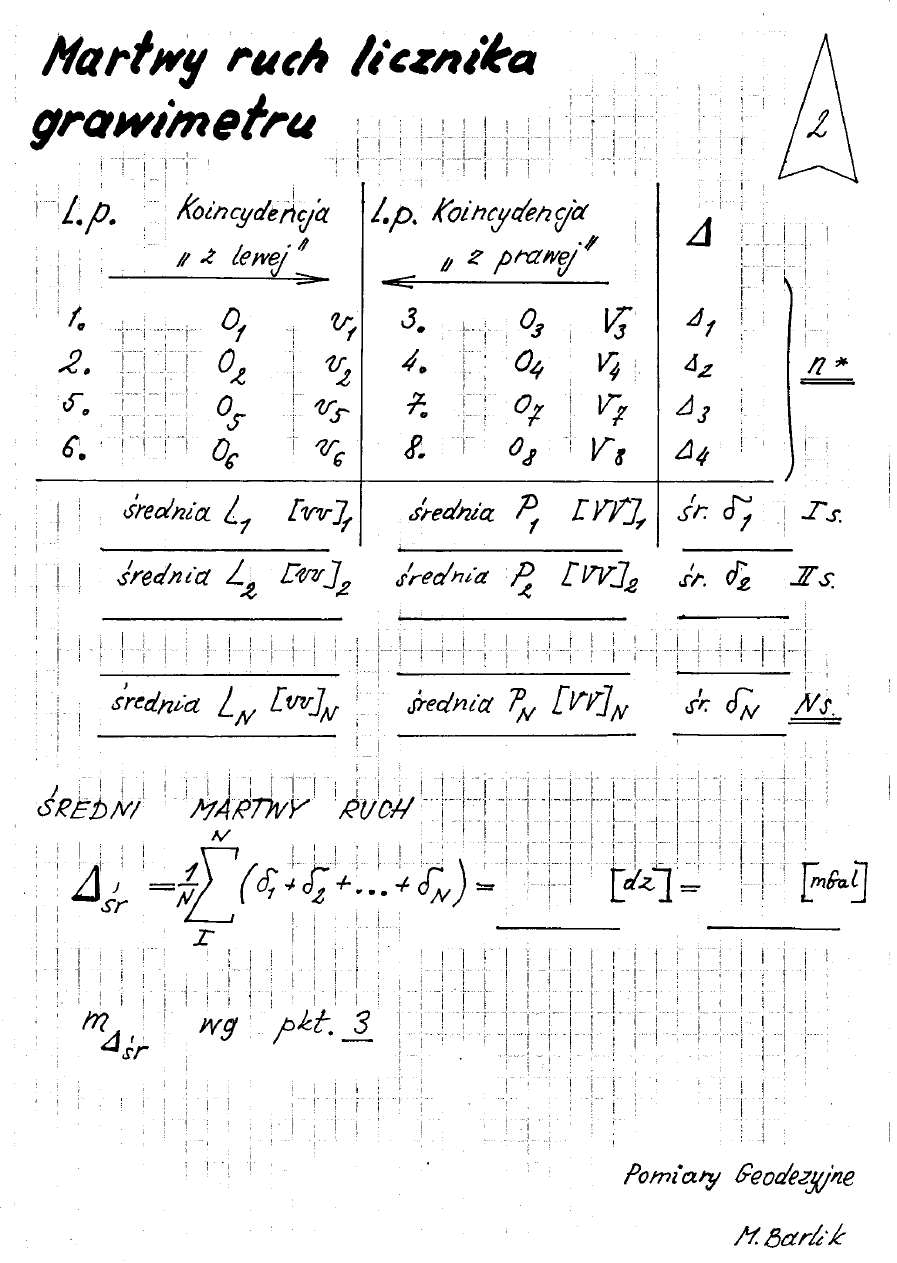 Martwy ruch licznika
grawimetru
2
L.p. Koincydencja „z lewej" L.p. Koincydencja „z prawej" Δ
1. O₁ v₁ 3. O₃ V₃ Δ₁
2. O₂ v₂ 4. O₄ V₄ Δ₂ n*
5. O₅ v₅ 7. O₇ V₇ Δ₃
6. O₆ v₆ 8. O₈ V₈ Δ₄
średnia L₁ [vv]₁ średnia P₁ [VV]₁ śr. δ₁ I s.
średnia L₂ [vv]₂ średnia P₂ [VV]₂ śr. δ₂ II s.
średnia L_N [vv]_N średnia P_N [VV]_N śr. δ_N N s.
ŚREDNI MARTWY RUCH
Δ_śr = 1/N ∑_I^N (δ₁ + δ₂ + ... + δ_N) = [dz] = [mGal]
m_Δśr wg pkt. 3
Pomiary Geodezyjne
M. Barlik